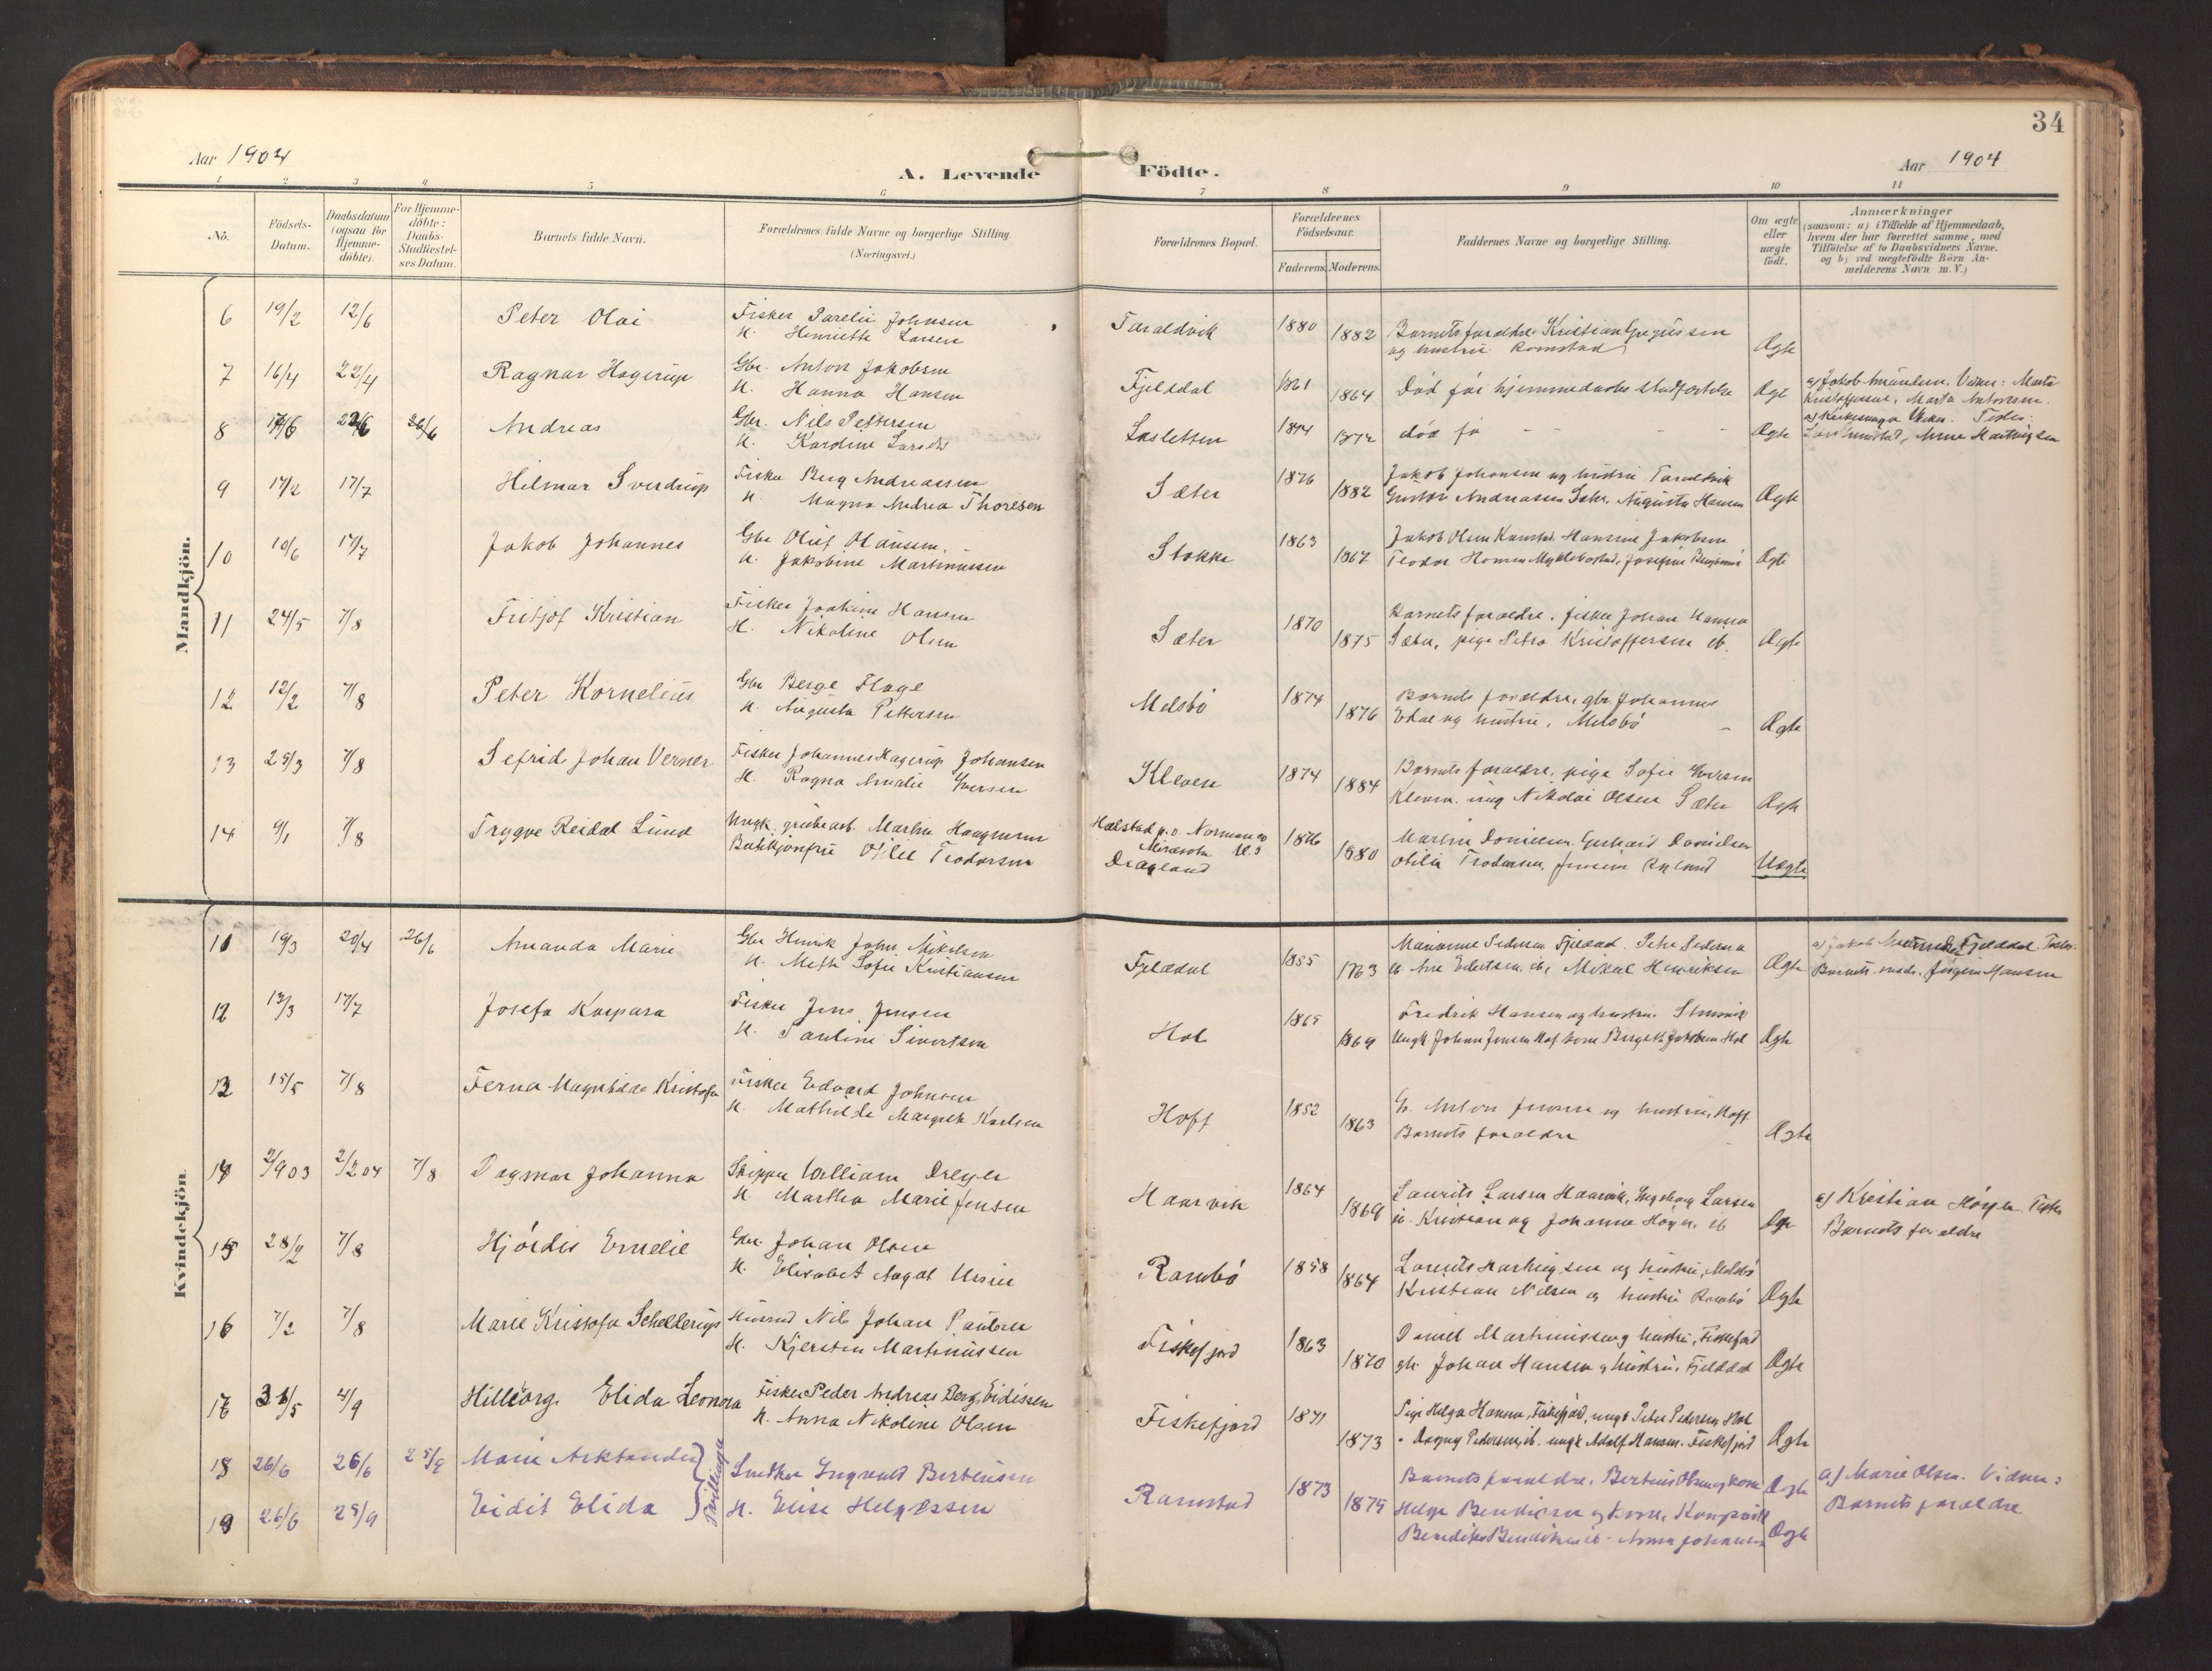 34
Aar 1904
A. Levende Födte.
Aar 1904
1 2 3 4 5 6 7 8 9 10 11
No.
Födsels-Datum.
Daabsdatum (ogsaa for Hjemme-döbte).
For Hjemme-döbte: Daabs-Stadfæstel-ses Datum.
Barnets fulde Navn.
Forældrenes fulde Navne og borgerlige Stilling.
(Næringsvei.)
Forældrenes Bopæl.
Forældrenes Födselsaar.
Faderens. Moderens.
Faddernes Navne og borgerlige Stilling.
Om ægte eller uægte födt.
Anmærkninger
(saasom: a) i Tilfælde af Hjemmedaab,
hvem der har forrettet samme, med
Tilföielse af to Daabsvidners Navne,
og b) ved uægtefödte Börn An-
melderens Navn m. V.)
Mandkjön.
6 19/2 12/6 Peter Olai Fisker Parelii Johnsen Taraldvik 1880
H. Henriette Larsen 1882 Barnets forældre, Kristian
og hustru Ramstad Ægte
7 16/4 22/4 Ragnar Hagerup Gbr. Anton Jakobsen Fjeldal 1861
H. Hanna Hansen 1864 Död för hjemmedaabs stadfæstelse Ægte a) Jakob Amundsen. Vidner: Marta
Kristoffersen, Marta Antonsen.
8 Andreas Gbr. Nils Pettersen Lasletten 1874
H. Karoline Larsen 1872 död fö - - - Ægte
9 17/2 17/7 Hilmar Sverdrup Fisker Berg Andreassen Sæter 1876 Jakob Johansen og hustru Taraldvik
H. Magna Andrea Thoresen 1882 Gustav Andreasen Sæter, Augusta Hansen Ægte
10 10/6 17/7 Jakob Johannes Gbr Oluf Olausen Stokke 1863 Jakob Olsen Ramstad, Hansine Jakobsen
H. Jakobine Martinussen 1867 Teodor Hansen Myklebostad, Josefine Ægte
11 24/5 7/8 Fritjof Kristian Fisker Joakim Hansen Sæter 1870 Barnets forældre, fisker Johan Hansen
H. Nikoline Olsen 1875 Sæter, pige Petra Kristoffersen ib. Ægte
12 12/2 7/8 Peter Kornelius Gbr Berge Flage Melsbö 1874 Barnets forældre, gbr Johannes
H. Augusta Pettersen 1876 og hustru, Melsbö Ægte
13 25/3 7/8 Sefrid Johan Verner Fisker Johannes Hagerup Johansen Kleven 1874 Barnets forældre, pige Sofie Iversen
H. Ragna Amalie Iversen 1884 Kleven. ung. Nikolai Olsen Sæter Ægte
14 9/1 7/8 Trygve Reidal Lund Ungk. grubearb. Martin Haagensen Halstad p.o. Norman co 1876 Martin Danielsen. Gerhard Danielsen
Minesota U.S
Otilie Teodorsen Dragland 1880 Otilie Teodorsen, Uægte
Kvindekjön
11 19/3 20/4 26/6 Amanda Marie Gbr Henrik John Mikalsen Fjeldal 1855 Marianne Pedersen Fjeldal. Petra Pedersen
H. Meth Sofie Kristiansen 1863 ib Ane Edertsen, ib, Mikal Henriksen Ægte a) Jakob Fjeldal.
Barnets moder, Jörgen Hansen
12 13/3 17/7 Josefa Kaspara Fisker Jens Jensen Hol 1865 Fredrik Hansen og hustru
H. Pauline Sivertsen 1869 Ungk Johan Jensen Hol kone Birgeth Jakobsen Hol Ægte
13 15/5 7/8 Ferna Magnhilda Kristofa Fisker Edvard Johnsen Hoff 1852 Gbr. Anton Jensen og hustru, Hoff
H. Mathilde Margreth Karlsen 1863 Barnets forældre Ægte
14 2/9 03 2/2 04 7/8 Dagmar Johanna Skipper William Dreyer Haarvik 1864 Laurits Larsen Haarvik, Ingeborg Larsen
H. Martha Marie Jensen 1869 ib. Kristian og Johanna Höyer ib Ægte a) Kristian Höyer.
Barnets forældre
15 28/2 7/8 Hjördis Emelie Gbr. Johan Olsen Rambö 1858 Laurits Hartvigsen og hustru, Melsbö
H. Elisabet Aagot Ursin 1864 Kristian Nilsen og hustru Rambö Ægte
16 7/2 7/8 Marie Kristofa Schellerup Nils Johan Paulsen Fiskefjord 1863 Daniel Martinussen og hustru, Fiskefjord
H. Kjersten Martinussen 1870 gbr. Johan Hansen og hustru, Fjeldal Ægte
17 31/5 4/9 Hilleborg Elida Leonora Fisker Peder Andreas Berg Eidissen Fiskefjord 1871 Pige Helga Hansen, Fiskefjord, ungk Peter Pedersen Hol
H. Anna Nikoline Olsen 1873 " Dagny Pedersen, ib. ungk Adolf Hansen. Fiskefjord Ægte
18 26/6 26/6 25/9 Marie Arktanda } Tvillinger Ingvald Bertensen Ramstad 1873 Barnets forældre, Berteus Olsen og kone Ægte a) Marie Olsen. Vidner:
19 26/6 25/9 Eidit Elida H. Elise Helgessen 1879 Helge Bendiksen og kone, Kongsvik Barnets forældre
Benedikt Bendiksen ib. Anna Johansen Ægte